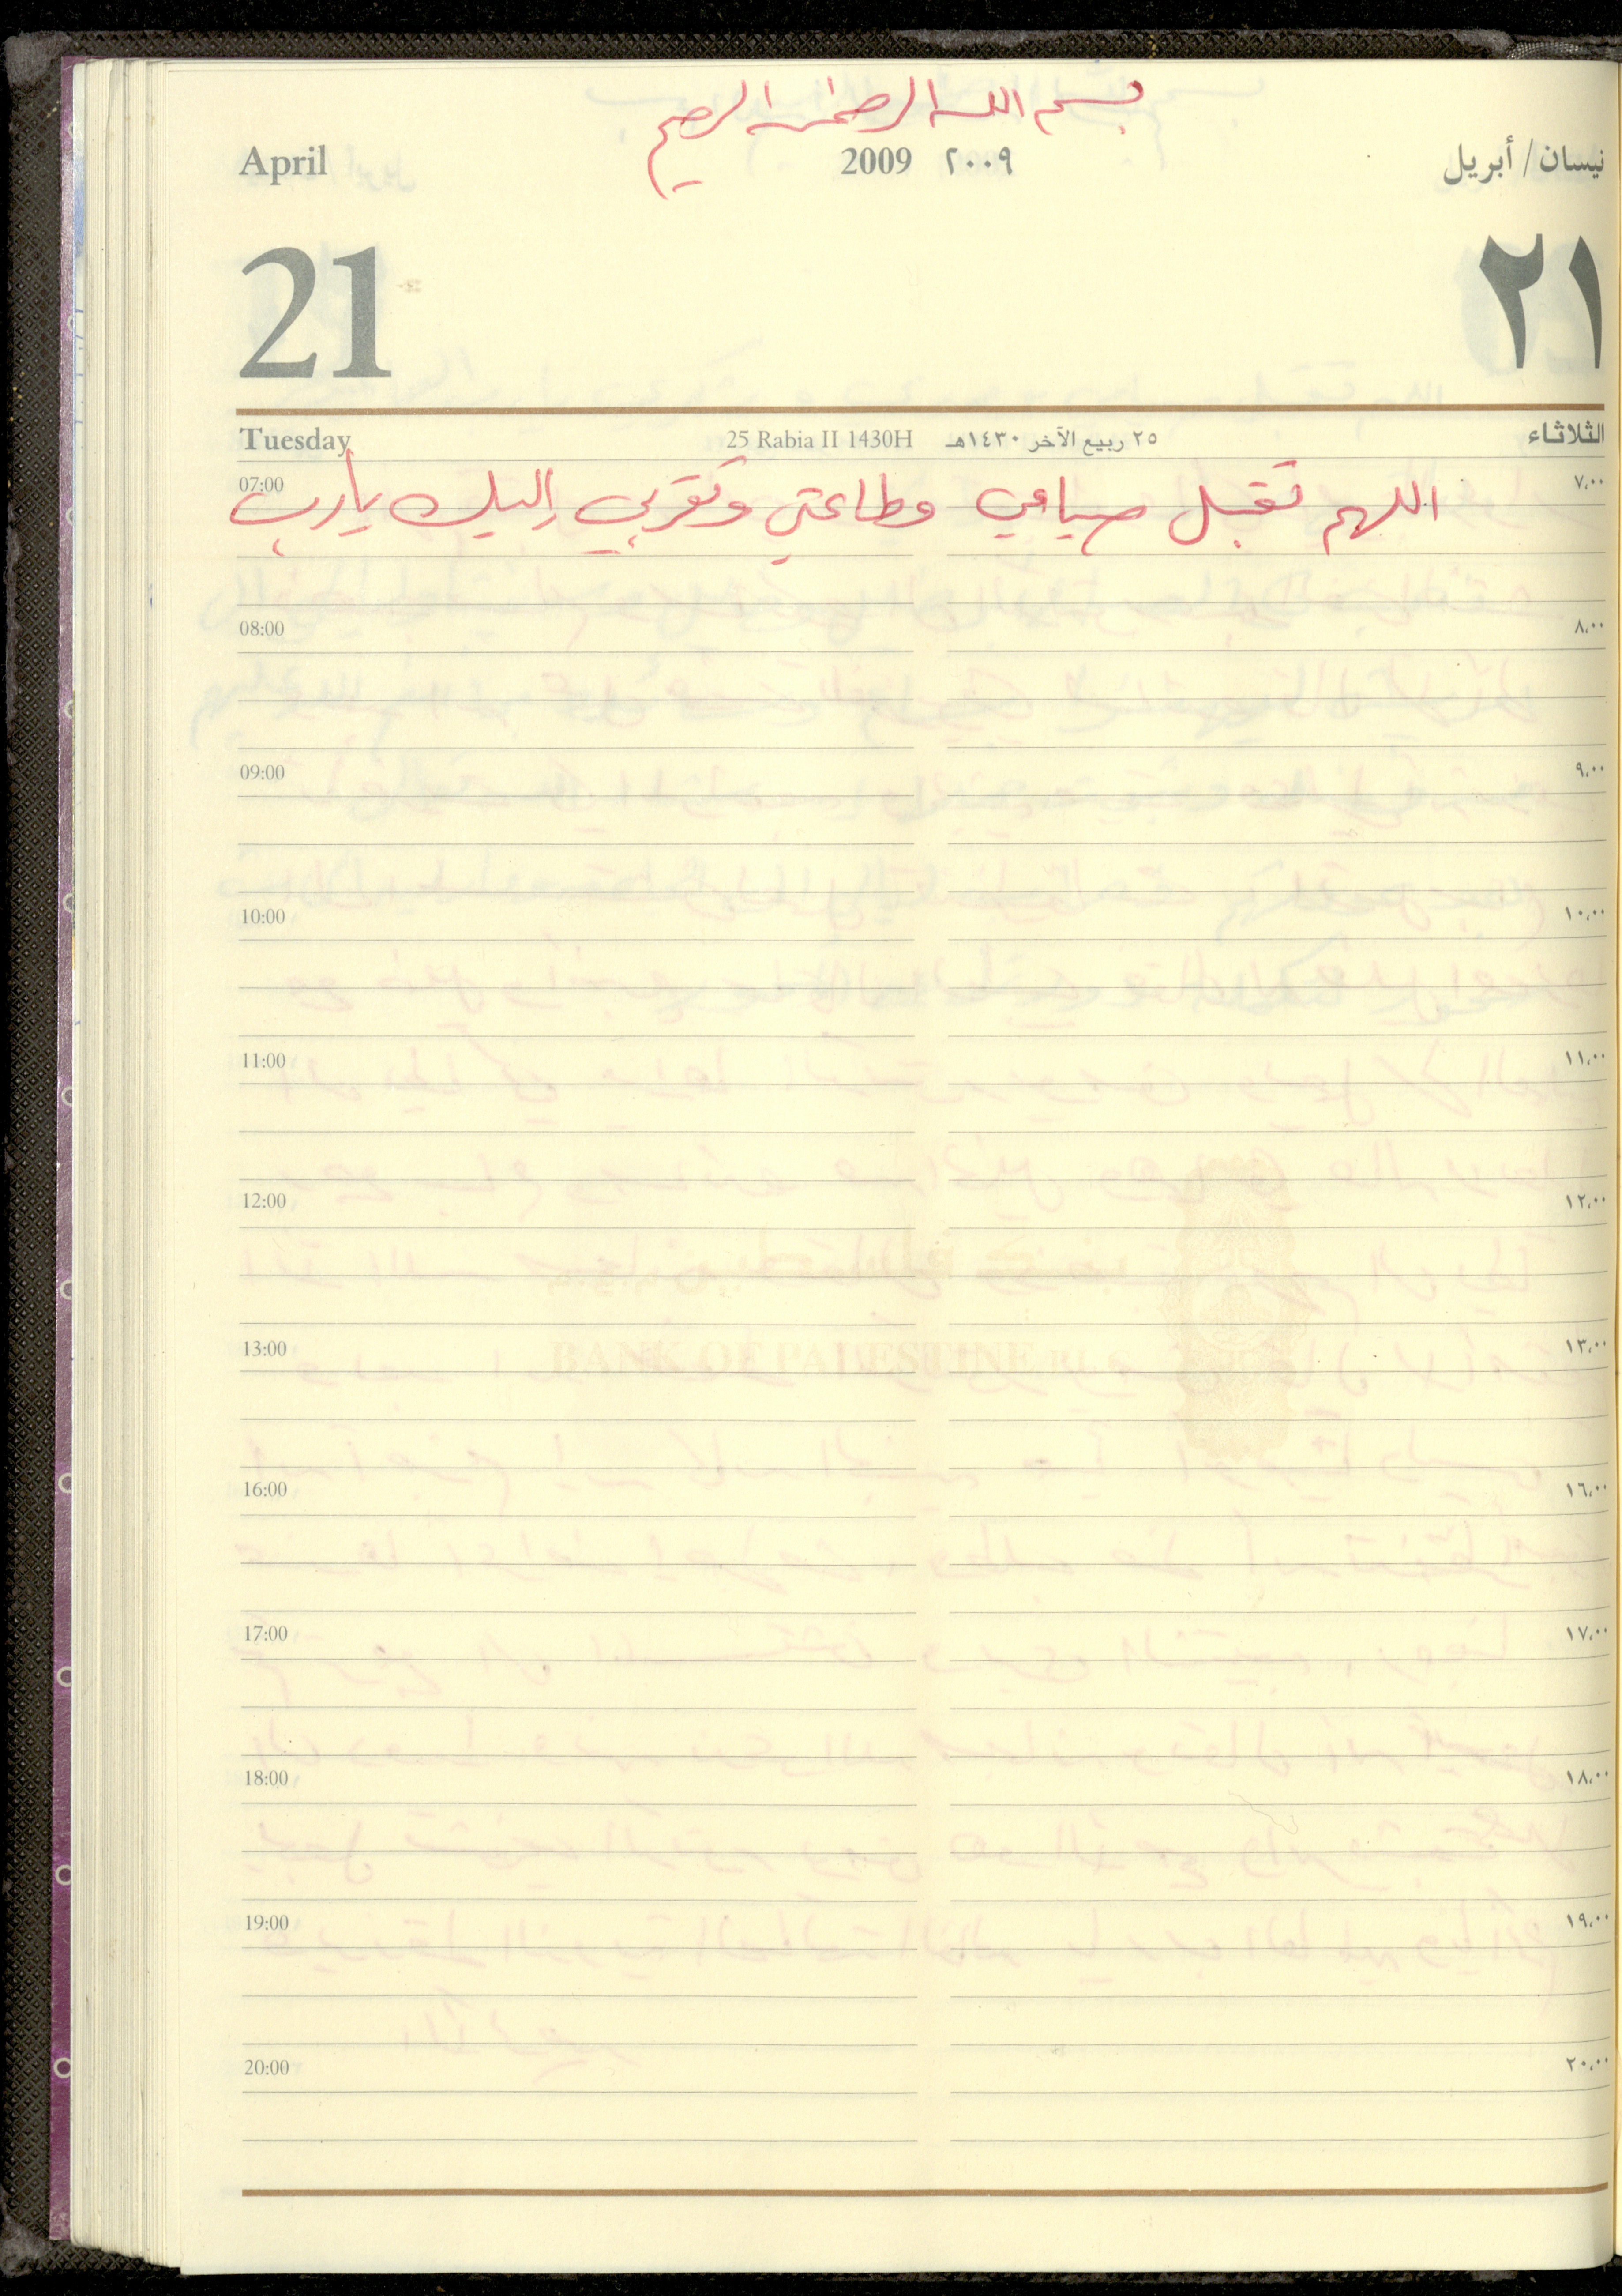 بسم الله الرحمن الرحيم
April 2009 ٢٠٠٩ نيسان / أبريل
21 ٢١
Tuesday 25 Rabia II 1430H ٢٥ ربيع الآخر ١٤٣٠هـ الثلاثاء
07:00 ٧،٠٠
اللهم تقبل صيامي وطاعتي وتقربي إليك يارب
08:00 ٨،٠٠
09:00 ٩،٠٠
10:00 ١٠،٠٠
11:00 ١١،٠٠
12:00 ١٢،٠٠
13:00 ١٣،٠٠
BANK OF PALESTINE
16:00 ١٦،٠٠
17:00 ١٧،٠٠
18:00 ١٨،٠٠
19:00 ١٩،٠٠
20:00 ٢٠،٠٠